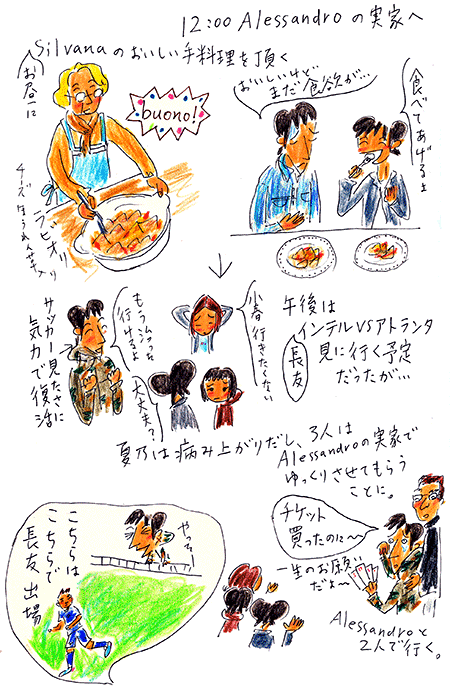 12:00 Alessandroの実家へ
Silvanaのおいしい手料理を頂く
お昼に
buono!
チーズ ほうれん草入
ラビオリ
おいしいけど
まだ食欲が…
食べてあげるよ
午後は
インテルVSアトランタ
長友
見に行く予定
だったが…
小春 行きたくない
もうムリって
行けるよ
大丈夫?
サッカー見たさに
気力で復活
夏乃は病み上がりだし、3人は
Alessandroの実家で
ゆっくりさせてもらう
ことに。
チケット
買ったのに〜
一生のお願い
だよ〜
Alessandroと
2人で行く。
やっぞ
こちらは
こちらで
長友 出場